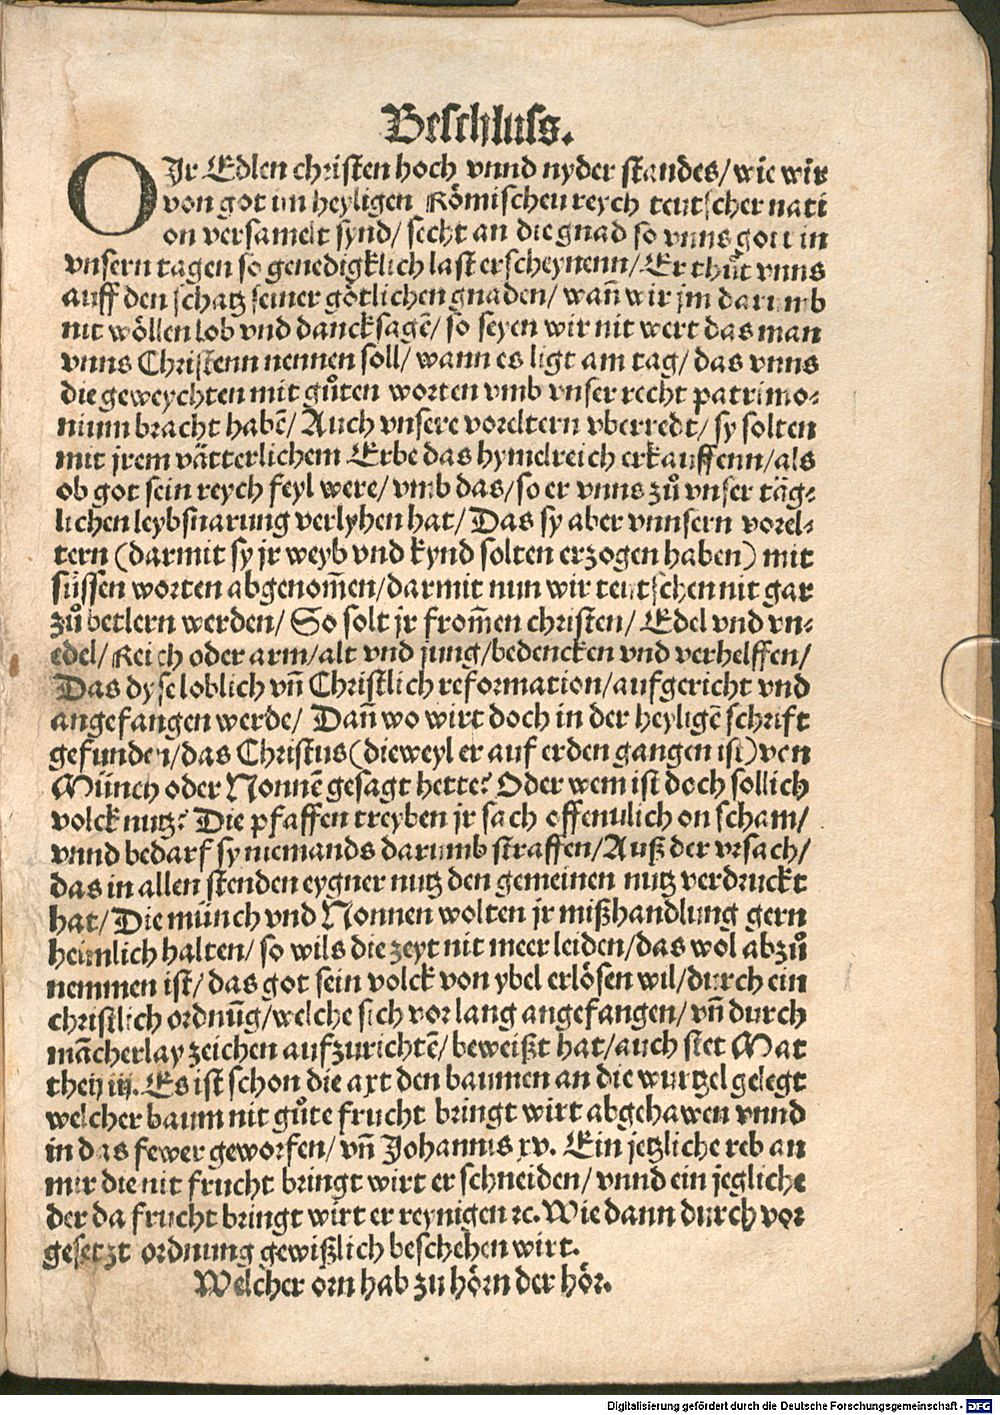 Beschluss.
O Jr Edlen christen hoch vnnd nyder standes/ wie wir
von got im heyligen Römischen reych teutscher nati
on versamelt synd/ secht an die gnad so vnns gott in
vnsern tagen so genedigklich last erscheynenn/ Er thůt vnns
auff den schatz seiner götlichen gnaden/ wañ wir jm darumb
nit wöllen lob vnd dancksagē/ so seyen wir nit wert das man
vnns Christenn nennen soll/ wann es ligt am tag/ das vnns
die geweychten mit gůten worten vmb vnser recht patrimo⸗
nium bracht habē/ Auch vnsere voreltern vberredt/ sy solten
mit jrem vätterlichem Erbe das hymelreich erkauffenn/ als
ob got sein reych feyl were/ vmb das/ so er vnns zů vnser täg⸗
lichen leybsnarung verlyhen hat/ Das sy aber vnnsern vorel⸗
tern (darmit sy jr weyb vnd kynd solten erzogen haben) mit
süssen worten abgenom̃en/ darmit nun wir teutschen nit gar
zů betlern werden/ So solt jr from̃en christen/ Edel vnd vn⸗
edel/ Reich oder arm/ alt vnd jung/ bedencken vnd verhelffen/
Das dyse loblich vñ Christlich reformation/ aufgericht vnd
angefangen werde/ Dañ wo wirt doch in der heyligē schrift
gefunden/ das Christus (dieweyl er auf erden gangen ist) von
Münch oder Nonnē gesagt hette? Oder wem ist doch sollich
volck nutz? Die pfaffen treyben jr sach offenulich on scham/
vnnd bedarf sy niemands darumb straffen/ Auß der vrsach/
das in allen stenden eygner nutz den gemeinen nutz verdruckt
hat/ Die münch vnd Nonnen wolten jr mißhandlung gern
heimlich halten/ so wils die zeyt nit meer leiden/ das wol abzů
nemmen ist/ das got sein volck von ybel erlösen wil/ durch ein
christlich ordnūg/ welche sich vor lang angefangen/ vñ durch
mācherlay zeichen aufzurichtē/ beweißt hat/ auch stet Mat
thei iij. Es ist schon die axt den baumen an die wurtzel gelegt
welcher baum nit gůte frucht bringt wirt abgehawen vnnd
in das fewer geworfen/ vñ Johannis xv. Ein jetzliche reb an
mir die nit frucht bringt wirt er schneiden/ vnnd ein jegliche
der da frucht bringt wirt er reynigen ꝛc. Wie dann durch vor
gesetzt ordnung gewißlich beschehen wirt.
Welcher orn hab zu hörn der hör.
Digitalisierung gefördert durch die Deutsche Forschungsgemeinschaft - DFG